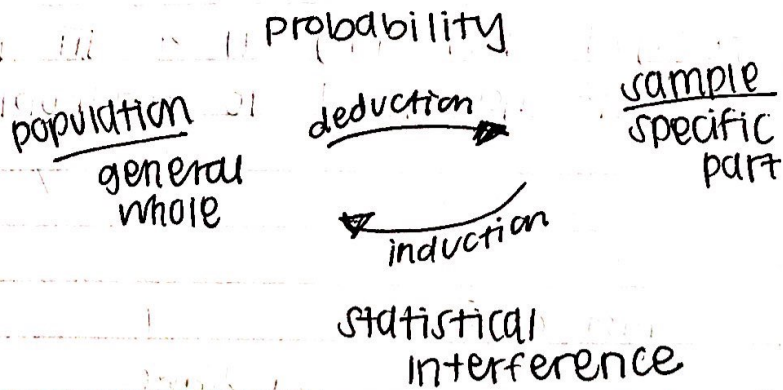 probability
population
general
whole
deduction
sample
specific
part
induction
statistical
interference